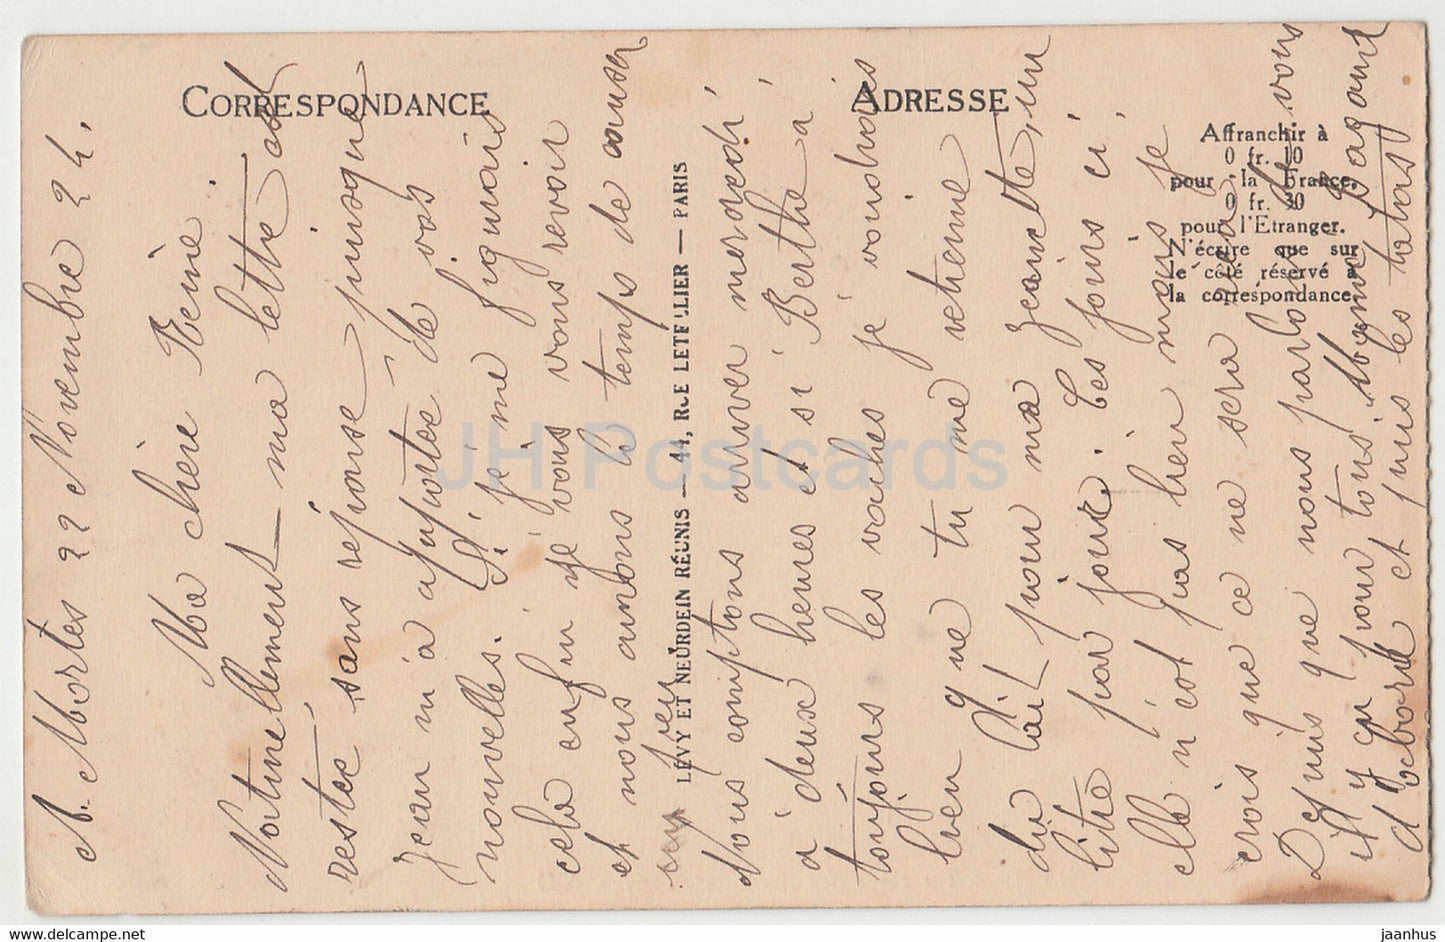 A. Mortes 22 Novembre 24.
Ma chère Reine
Naturellement ma lettre est
restée sans réponse jusque
Jean m'a apportée de vos
nouvelles. Si je me figurais
cela enfin je vous vous revoir
et nous aurons le temps de causer
un peu
Nous comptons arriver mercredi
à deux heures et si Berthe a
toujours les vaches je voudrais
bien que tu me retienne
du lait pour ma Jeannette, un
litre par jour. Ces jours ci
elle n'est pas bien mais je
crois que ce ne sera rien
Depuis que nous parlons vous
il y en pour tous. Mémé Pagand
d'abord et puis les tatas
CORRESPONDANCE
ADRESSE
Affranchir à
0 fr. 10
pour la France.
0 fr. 30
pour l'Etranger.
N'écrire que sur
le côté réservé à
la correspondance.
LÉVY ET NEURDEIN RÉUNIS — 44, RUE LETELLIER — PARIS
JH Postcards
www.delcampe.net
jaanhus